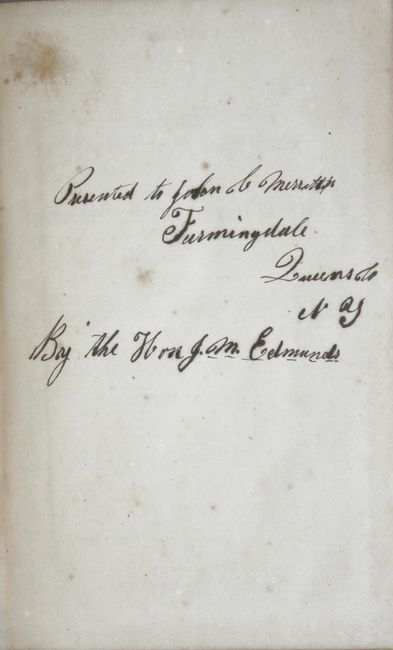 Presented to John C Merritt
Farmingdale.
Queens Co
N Y
By the Hon J. M. Edmunds